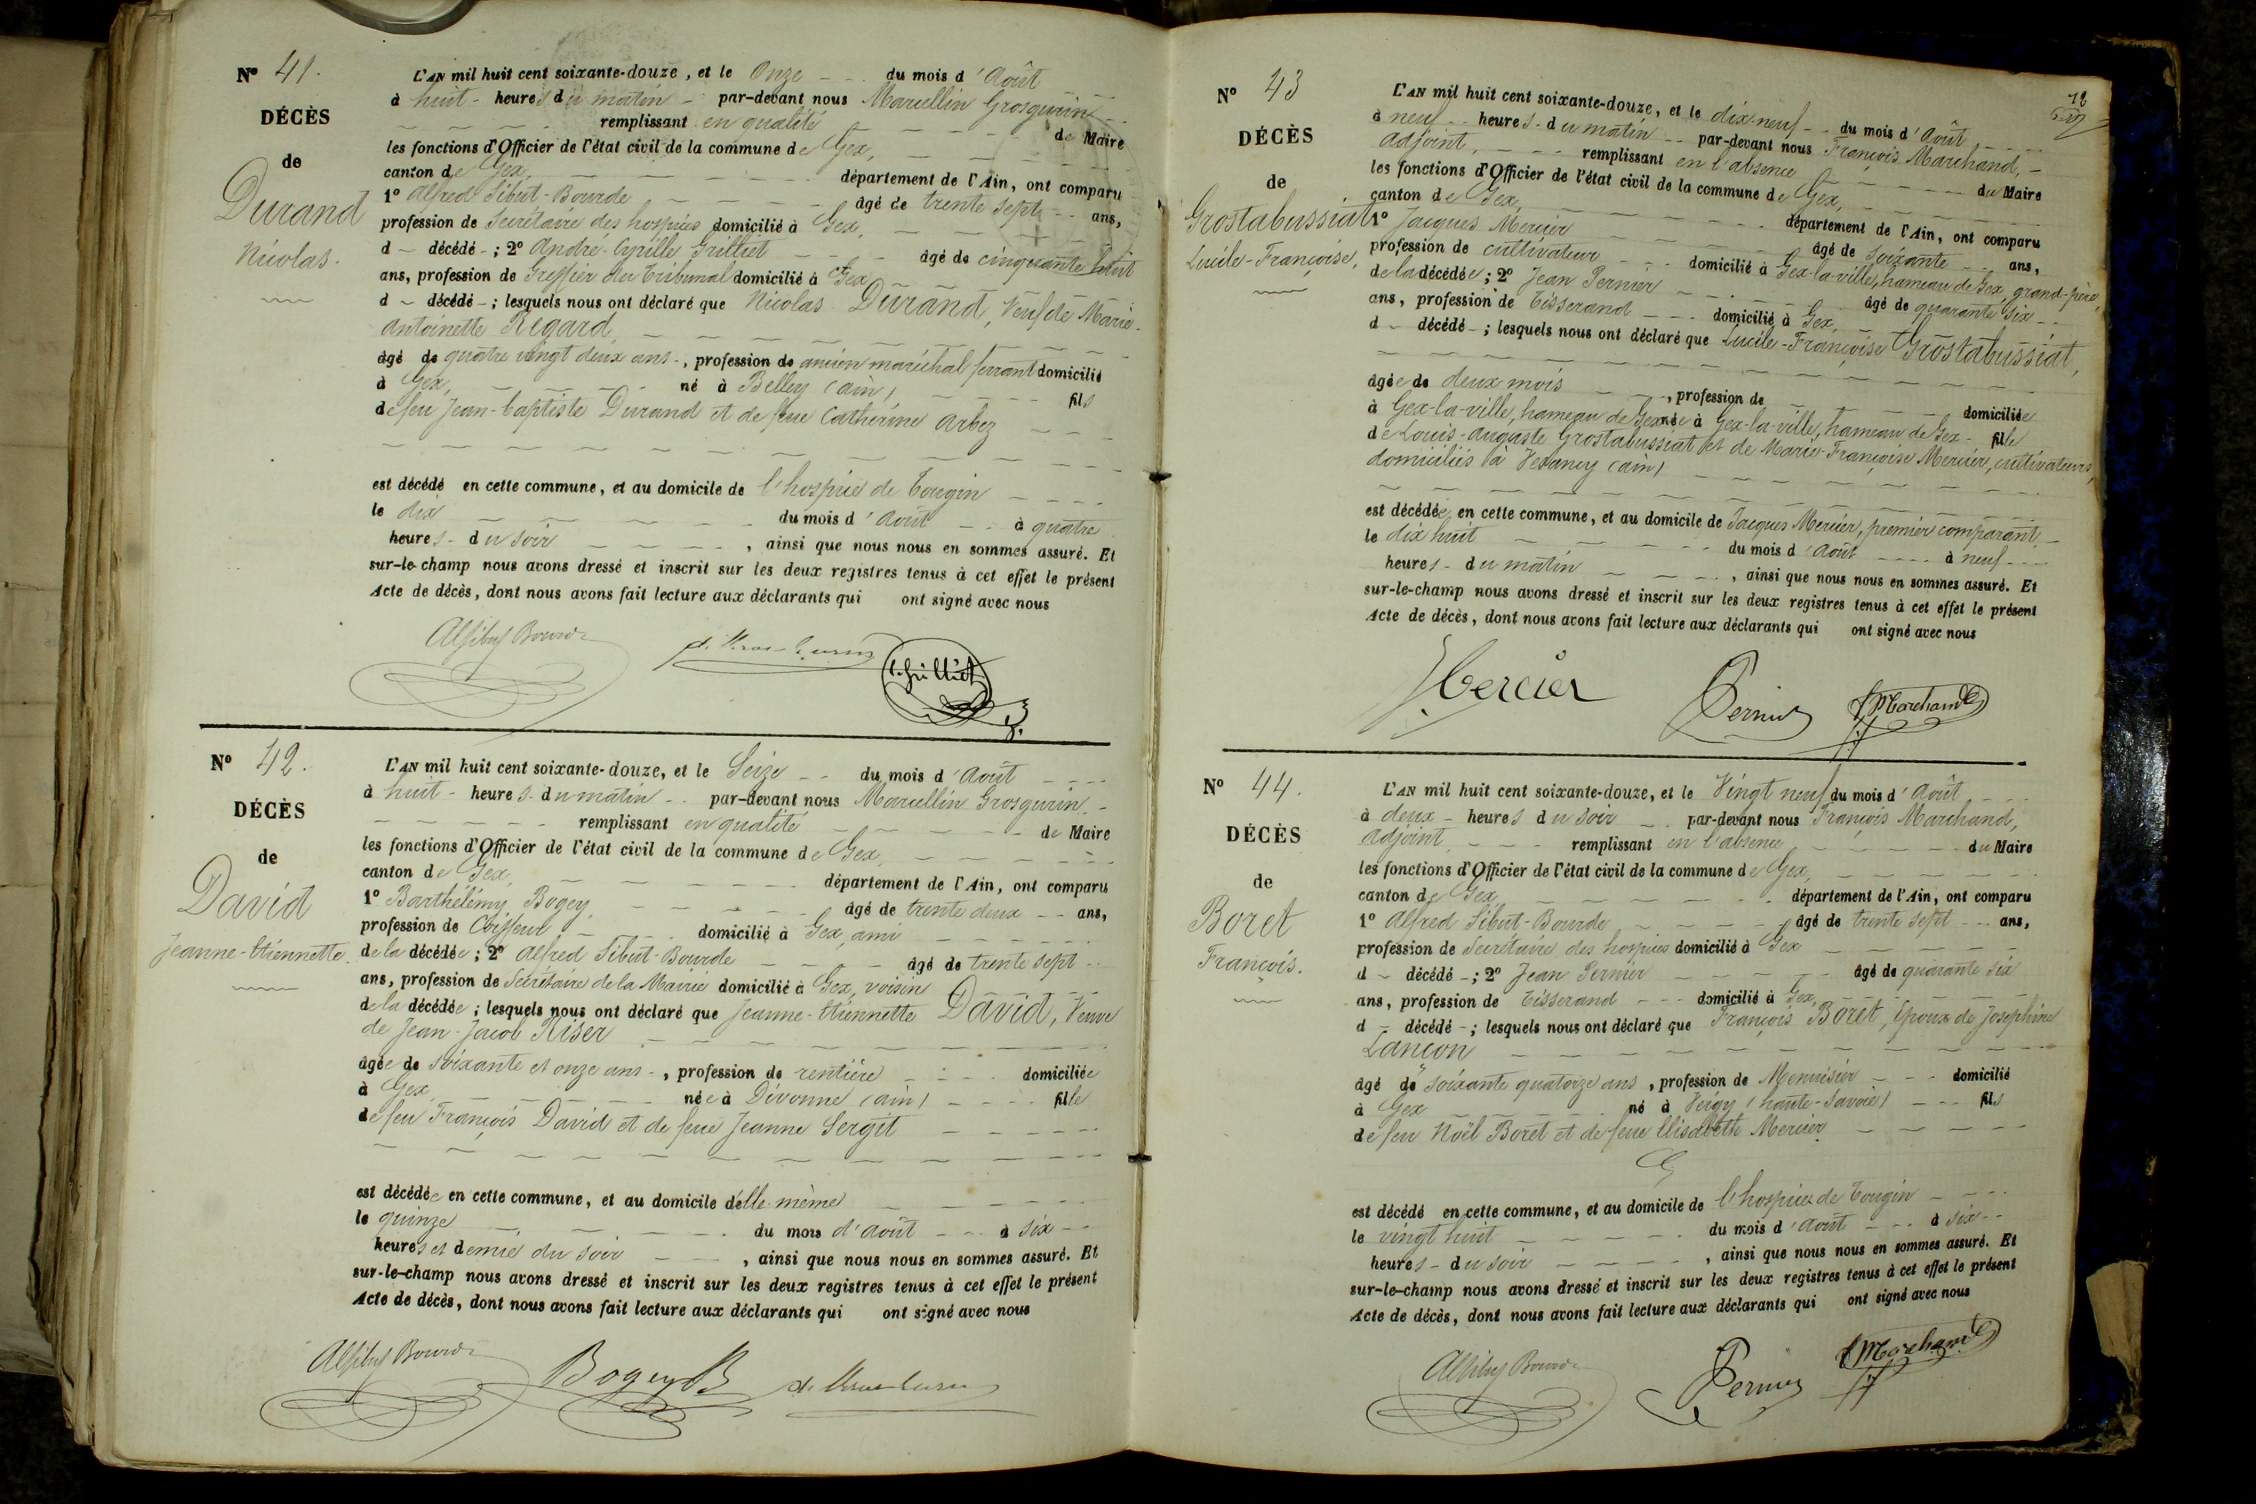 N° 41.
DÉCÈS
de
Durand
Nicolas.
L'AN mil huit cent soixante-douze, et le Onze du mois d'Août
à huit heures du matin par-devant nous Marcellin Grosgurin
remplissant en qualité de Maire
les fonctions d'Officier de l'état civil de la commune de Gex,
canton de Gex, département de l'Ain, ont comparu
1° Alfred Sibut-Bourde âgé de trente sept ans,
profession de Secrétaire des hospices domicilié à Gex,
d décédé ; 2° André-Cyrille Grilliet âgé de cinquante huit
ans, profession de Greffier du Tribunal domicilié à Gex
d décédé ; lesquels nous ont déclaré que Nicolas Durand, Veuf de Marie-
Antoinette Regard,
âgé de quatre vingt deux ans, profession de ancien maréchal ferrant domicilié
à Gex, né à Belley (ain) fils
de feu Jean-baptiste Durand et de feue Catherine Arbez
est décédé en cette commune, et au domicile de l'hospice de Tougin
le dix du mois d'Août à quatre
heures du soir, ainsi que nous nous en sommes assuré. Et
sur-le-champ nous avons dressé et inscrit sur les deux registres tenus à cet effet le présent
Acte de décès, dont nous avons fait lecture aux déclarants qui ont signé avec nous
Alf Sibut Bourde
C. Grilliet
N° 42.
DÉCÈS
de
David
Jeanne-Etiennette.
L'AN mil huit cent soixante-douze, et le Seize du mois d'Août
à huit heures du matin par-devant nous Marcellin Grosgurin
remplissant en qualité de Maire
les fonctions d'Officier de l'état civil de la commune de Gex,
canton de Gex, département de l'Ain, ont comparu
1° Barthélémy Bogey, âgé de trente deux ans,
profession de Coiffeur domicilié à Gex, ami
de la décédée ; 2° Alfred Sibut-Bourde âgé de trente sept
ans, profession de Secrétaire de la Mairie domicilié à Gex, voisin
de la décédée ; lesquels nous ont déclaré que Jeanne-Etiennette David, Veuve
de Jean-Jacob Kiser
âgée de soixante et onze ans, profession de rentière domiciliée
à Gex née à Divonne (ain) fille
de feu François David et de feue Jeanne Sergit
est décédée en cette commune, et au domicile d'elle-même
le quinze du mois d'Août à six
heures et demie du soir, ainsi que nous nous en sommes assuré. Et
sur-le-champ nous avons dressé et inscrit sur les deux registres tenus à cet effet le présent
Acte de décès, dont nous avons fait lecture aux déclarants qui ont signé avec nous
Alf Sibut Bourde Bogey B
12
N° 43
DÉCÈS
de
Grostabussiat
Lucile-Françoise,
L'AN mil huit cent soixante-douze, et le dix-neuf du mois d'Août
à neuf heures du matin par-devant nous François Marchand,
adjoint, remplissant en l'absence du Maire
les fonctions d'Officier de l'état civil de la commune de Gex,
canton de Gex, département de l'Ain, ont comparu
1° Jacques Mercier âgé de soixante ans,
profession de cultivateur domicilié à Gex-la-ville, hameau de Gex, grand-père
de la décédée ; 2° Jean Pernier âgé de quarante six
ans, profession de Tisserand domicilié à Gex,
d décédé ; lesquels nous ont déclaré que Lucile-Françoise Grostabussiat,
âgée de deux mois, profession de domiciliée
à Gex-la-ville, hameau de Gex née à Gex-la-ville, hameau de Gex fille
de Louis-Auguste Grostabussiat et de Marie-Françoise Mercier, cultivateurs,
domiciliés à Vesancy (ain)
est décédée en cette commune, et au domicile de Jacques Mercier, premier comparant,
le dix huit du mois d'Août à neuf
heures du matin, ainsi que nous nous en sommes assuré. Et
sur-le-champ nous avons dressé et inscrit sur les deux registres tenus à cet effet le présent
Acte de décès, dont nous avons fait lecture aux déclarants qui ont signé avec nous
Mercier Pernier f Marchand
N° 44.
DÉCÈS
de
Boret
François.
L'AN mil huit cent soixante-douze, et le Vingt neuf du mois d'Août
à deux heures du soir par-devant nous François Marchand,
adjoint remplissant en l'absence du Maire
les fonctions d'Officier de l'état civil de la commune de Gex,
canton de Gex, département de l'Ain, ont comparu
1° Alfred Sibut-Bourde âgé de trente sept ans,
profession de Secrétaire des hospices domicilié à Gex
d décédé ; 2° Jean Pernier âgé de quarante six
ans, profession de Tisserand domicilié à Gex,
d décédé ; lesquels nous ont déclaré que François Boret, Epoux de Joséphine
Lançon
âgé de soixante quatorze ans, profession de Menuisier domicilié
à Gex né à Veigy (haute-Savoie) fils
de feu Noël Boret et de feue Elisabeth Mercier
est décédé en cette commune, et au domicile de l'hospice de Tougin
le vingt huit du mois d'Août à six
heures du soir, ainsi que nous nous en sommes assuré. Et
sur-le-champ nous avons dressé et inscrit sur les deux registres tenus à cet effet le présent
Acte de décès, dont nous avons fait lecture aux déclarants qui ont signé avec nous
Alf Sibut Bourde Pernier f Marchand